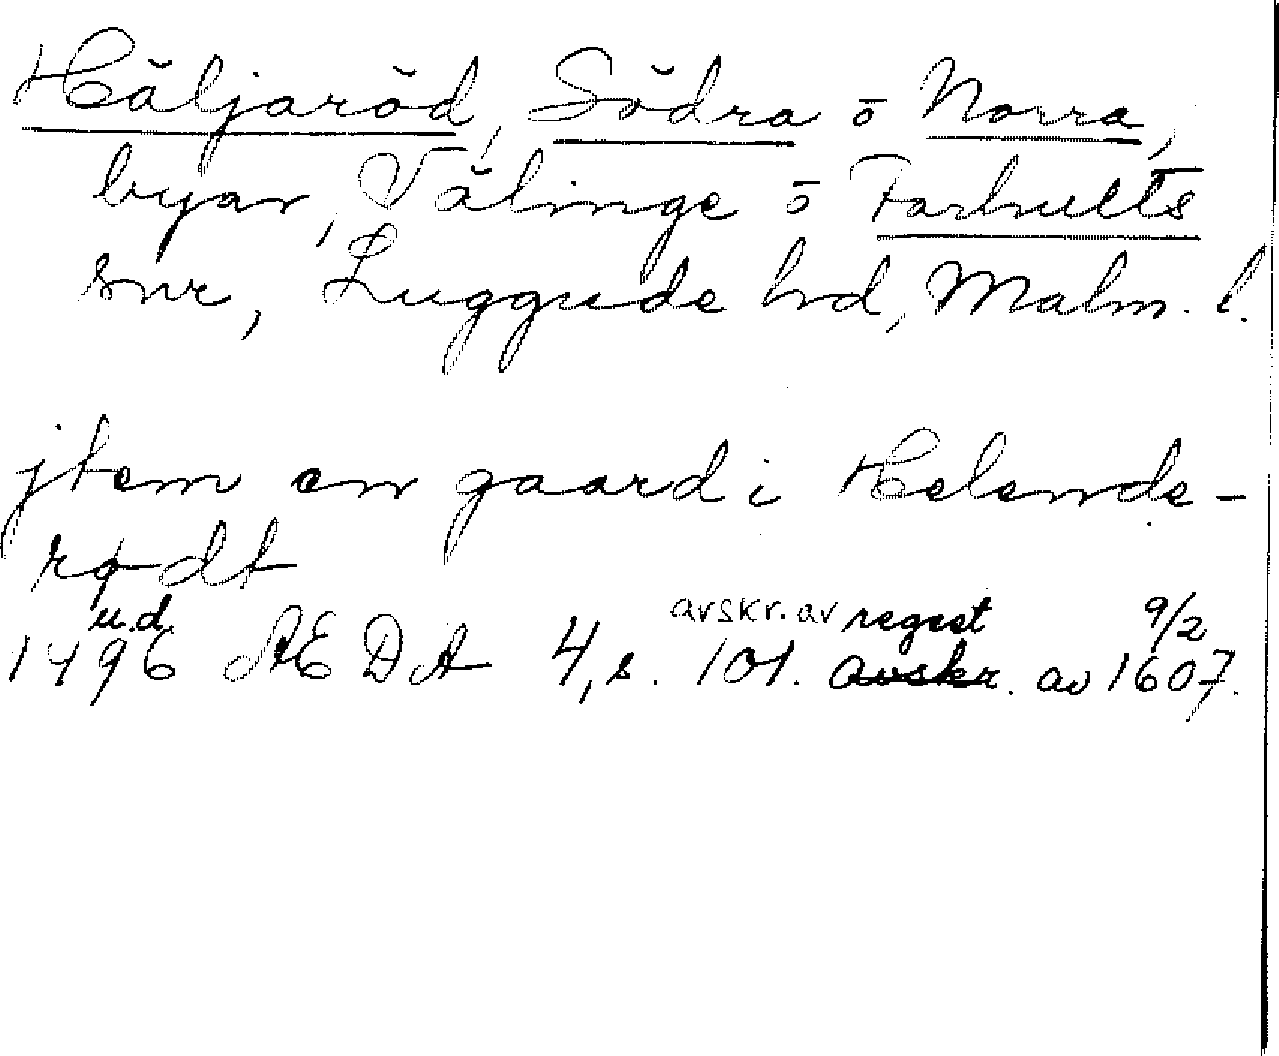 Häljaröd, Södra o Norra,
byar, Välinge o Farhults
snr, Luggude hd, Malm. l.
jtem en gaard i Helende-
rødt
u.d. avskr. av regest 9/2
1496 ÆDA 4, s. 101. avskr. av 1607.